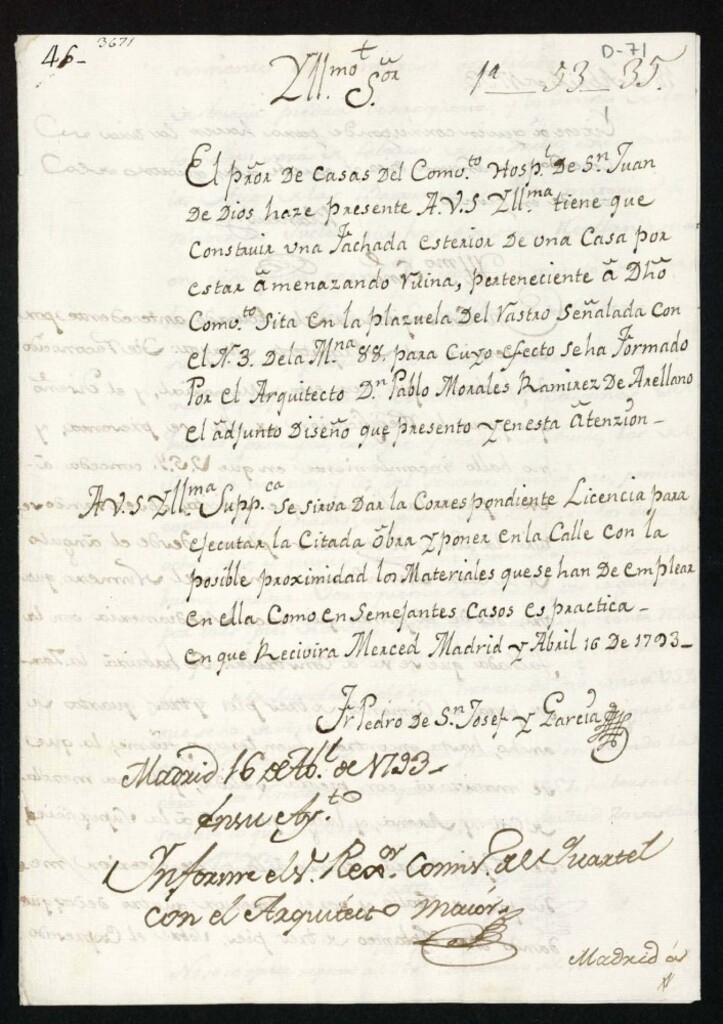 46- 3671 D-71
Yll.mo S.or 1ª 53 35.
El pror De Casas Del Comv.to Hosp.l De S.n Juan
De Dios haze presente A.V.S Yll.ma tiene que
Construir vna Fachada esterior De vna Casa por
estar amenazando Ruina, perteneciente a Dho
Comv.to Sita en la plazuela Del Rastro Señalada con
el N. 3. De la M.na 88. para Cuyo efecto se ha Formado
Por el Arquitecto D.n Pablo Morales Ramirez De Arellano
el adjunto Diseño que presento y en esta Atenzion-
A.V.S Yll.ma Supp.ca Se sirva Dar la Correspondiente Licencia para
ejecutar la Citada obra y poner en la Calle con la
posible proximidad los Materiales que se han De emplear
en ella Como en Semejantes Casos es practica-
en que Recivira Merced Madrid y Abril 16 De 1793-
Fr Pedro De S.n Josef y Garcia
Madrid 16 de Ab.l de 1793-
En su Ay.to
Informe el S.r Rex.or Comis.o del Quartel
con el Arquitecto maior.
Madrid